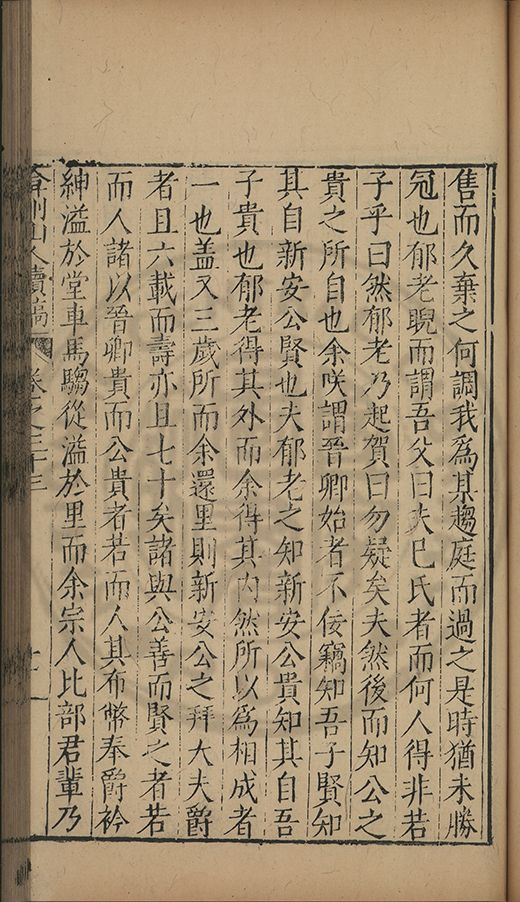 售而久棄之何調我為某趨庭而過之是時猶未勝
冠也郁老睨而謂吾父曰夫巳氏者而何人得非若
子乎曰然郁老乃起賀曰勿疑矣夫然後而知公之
貴之所自也余咲謂晉卿始者不佞竊知吾子賢知
其自新安公賢也夫郁老之知新安公貴知其自吾
子貴也郁老得其外而余得其內然所以為相成者
一也盖又三歲所而余還里則新安公之拜大夫爵
者且六載而壽亦且七十矣諸與公善而賢之者若
而人諸以晉卿貴而公貴者若而人其布幣奉爵衿
紳溢於堂車馬騶從溢於里而余宗人比部君輩乃
弇州山人續稿 卷之三十三